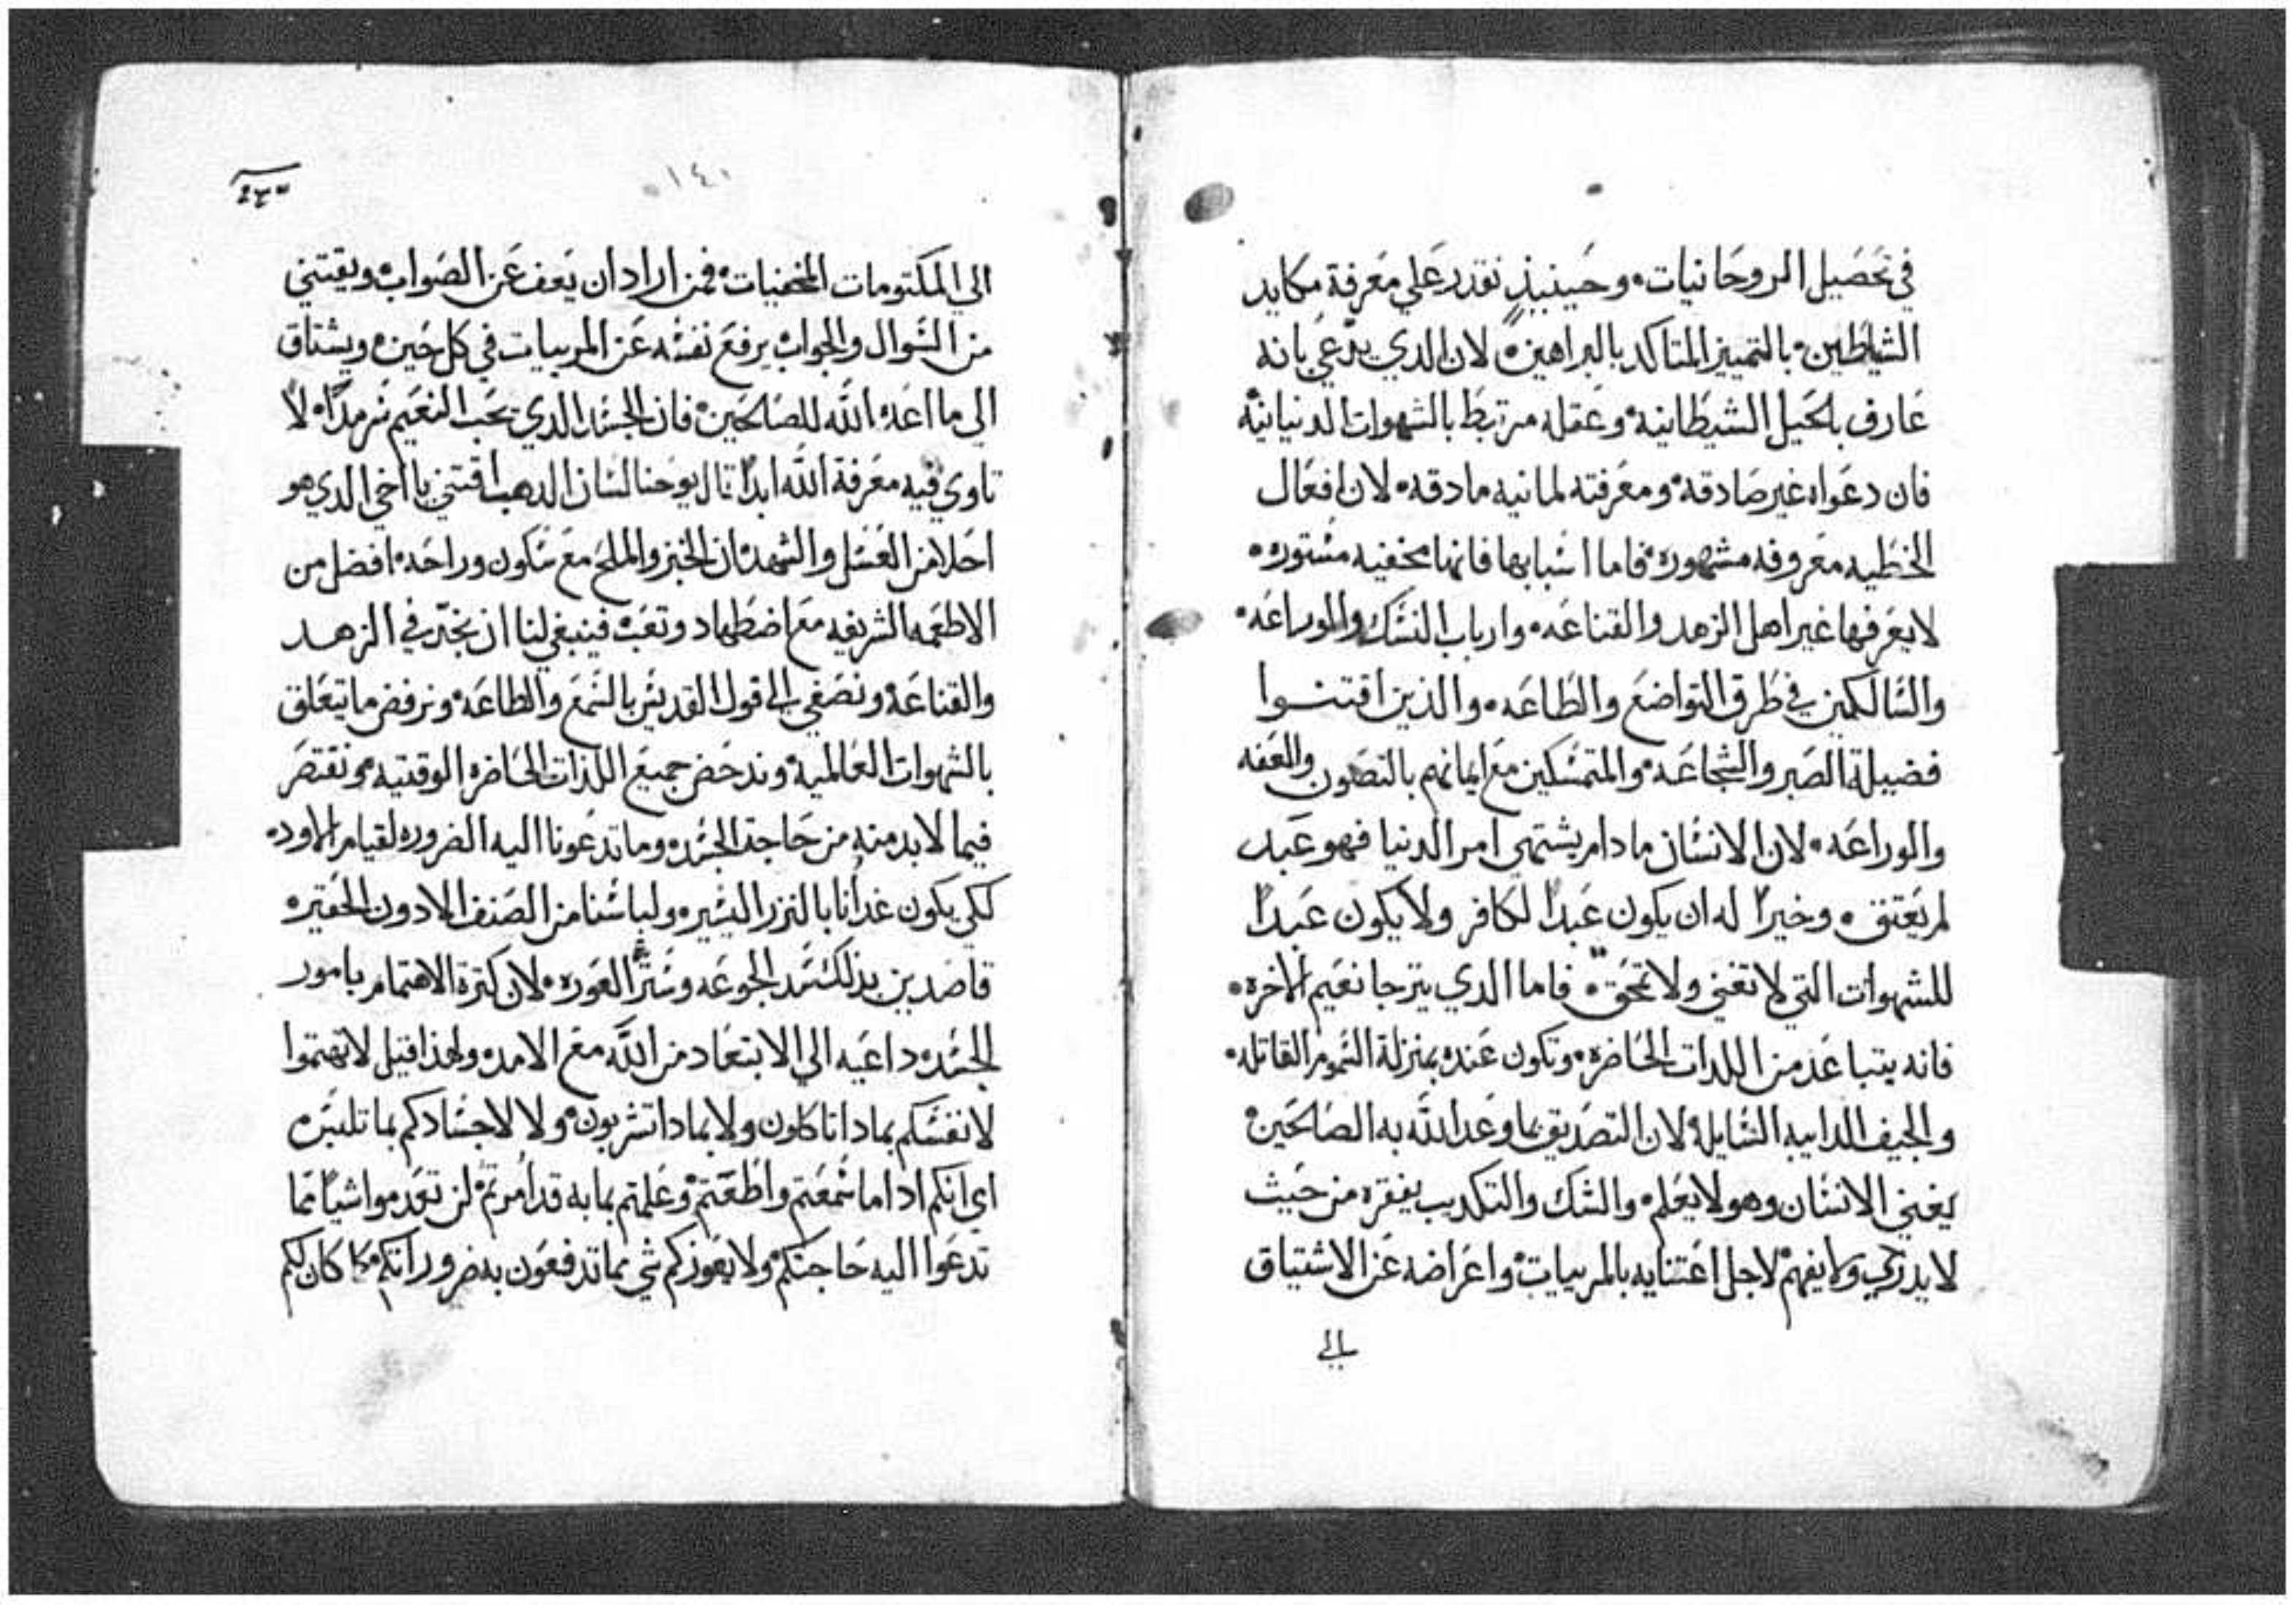 في تحصيل الروحانيات، وحينيذ نقدر علي معرفة مكايد
الشياطين، بالتمييز المتاكد بالبراهين، لان الدي يدّعي بانه
عارف بالحيل الشيطانيه، وعقله مرتبط بالشهوات الدنيانيّه
فان دعواه غير صادقه، ومعرفته لمانيه مادقه، لان افعال
الخطيه معروفه مشهوره، فاما اسبابها فانها مخفيه مستوره،
لا يعرفها غير اهل الزهد والقناعه، وارباب النسك والوراعه،
والسالكين في طرق التواضع والطاعه، والذين اقتنوا
فضيلة الصبر والشجاعه، والمتمسكين مع ايمانهم بالتصون والعفه
والوراعه، لان الانسان مادام يشتهي امر الدنيا فهو عبد
لم يعتق، وخيراً له ان يكون عبداً لكافر ولا يكون عبداً
للشهوات التي لا تغني ولا تحقّ، فاما الدي يترجا نعيم الاخره،
فانه يتباعد من اللدات الحاضره، وتكون عنده بمنزلة السموم القاتله،
والجيف الدايبه السايله، لان التصديق بما وعد الله به الصالحين،
يغني الانسان وهو لا يعلم، والشك والتكديب يفقره من حيث
لا يدري ولا يفهم، لاجل اعتنايه بالمرييات، واعراضه عن الاشتياق
الي
١٤٠
الي المكتومات المخفيات، فمن اراد ان يقف عن الصواب، ويقتني
من السوال والجواب، يرفع نفسه عن المرييات في كل حين، ويشتاق
الي ما اعده الله للصالحين، فان الجسد الدي يحب النعيم سرمداً، لا
تاوي فيه معرفة الله ابداً، قال يوحنا لسان الدهب اقتني يا اخي الدي هو
احلا من العسل والشهد، ان الخبز والملح مع سكون وراحه، افضل من
الاطعمه الشريفه مع اضطهاد وتعب، فينبغي لنا ان نجدّ في الزهد
والقناعه، ونصغي الي قول القديس بالسمع والطاعه، ونرفض ما يتعلق
بالشهوات العالميه، وندحض جميع اللذات الحاضره الوقتيه، ونقتصر
فيما لا بد منه من حاجة الجسد، وما تدعونا اليه الضروره لقيام الاود،
لكي يكون غدانا بالنزر اليسير، ولباسنا من الصنف الادون الحقير،
قاصدين بذلك سد الجوعه وستر العوره، لان كترة الاهتمام بامور
الجسد، داعيه الي الابتعاد من الله مع الامد، ولهذا قيل لا تهتموا
لانفسكم بمادا تاكلون ولا بمادا تشربون، ولا لاجسادكم بما تلبسو
اي انكم ادا ما سمعتم واطعتم، وعلمتم بما به قد امرتم، لن تعدموا شياً مما
تدعوا اليه حاجتكم، ولا يعوزكم شي مما تدفعون به ضروراتكم، كما كان لكم